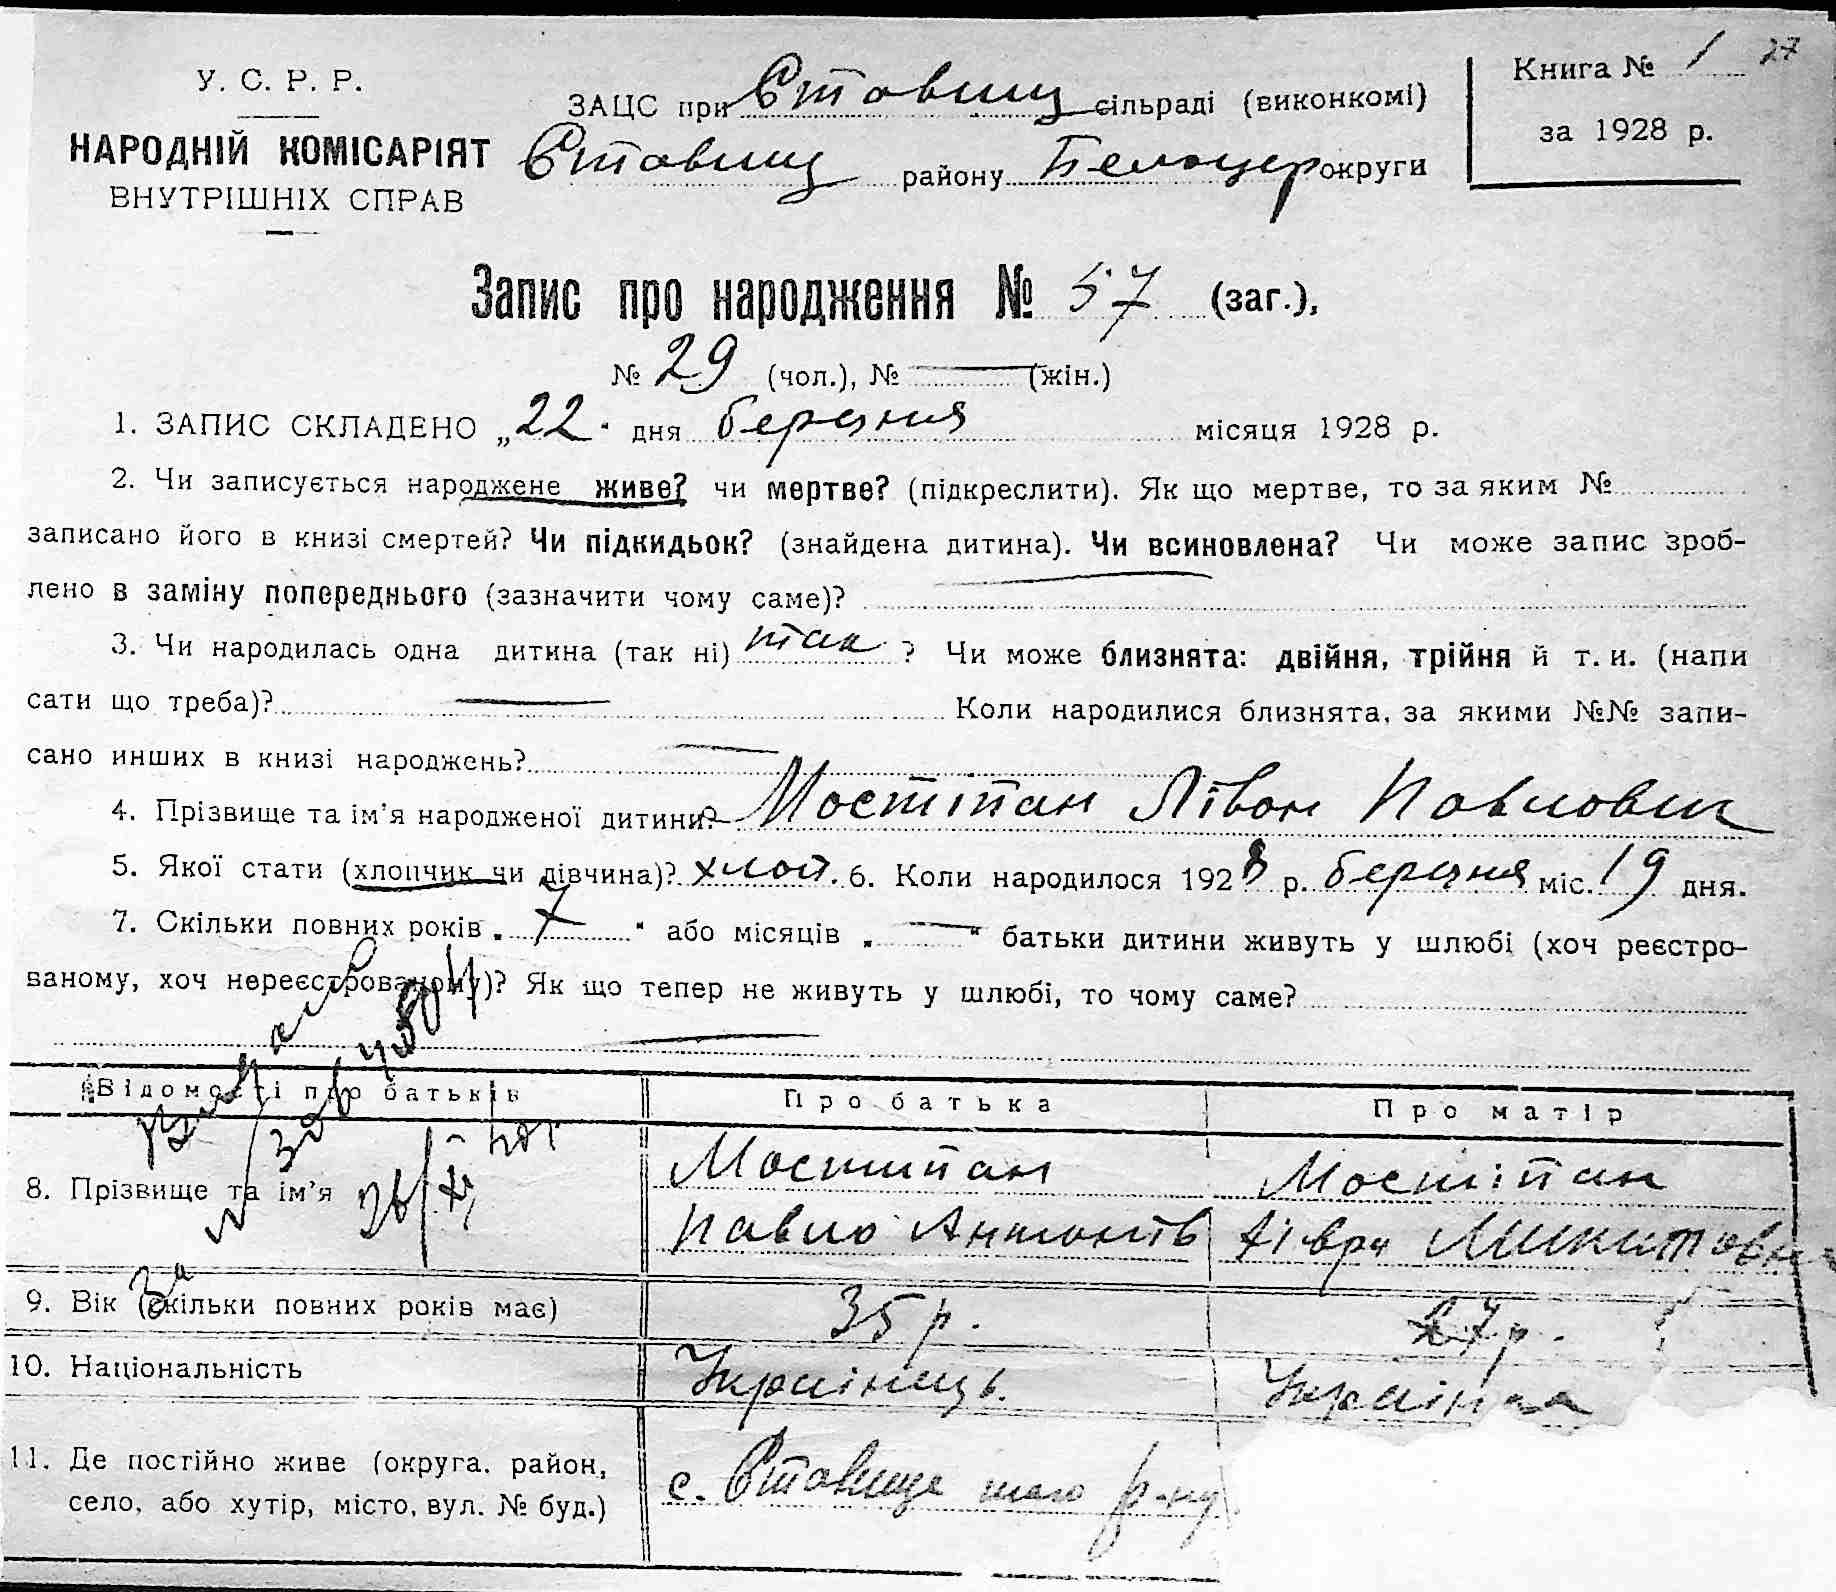 Книга № 1 27
за 1928 р.
У. С. Р. Р.
НАРОДНІЙ КОМІСАРІЯТ
ВНУТРІШНІХ СПРАВ
ЗАЦС при Ставищ сільраді (виконкомі)
Ставищ району Белоцер округи
Запис про народження № 57 (заг.),
№ 29 (чол.), № — (жін.)
1. ЗАПИС СКЛАДЕНО „22“ дня березня місяця 1928 р.
2. Чи записується народжене живе? чи мертве? (підкреслити). Як що мертве, то за яким №
записано його в книзі смертей? Чи підкидьок? (знайдена дитина). Чи всиновлена? Чи може запис зроб-
лено в заміну попереднього (зазначити чому саме)?
3. Чи народилась одна дитина (так ні) так ? Чи може близнята: двійня, трійня й т. и. (напи
сати що треба)? — Коли народилися близнята, за якими №№ запи-
сано инших в книзі народжень? —
4. Прізвище та ім'я народженої дитини? Мостіпан Лівон Павлович
5. Якої стати (хлопчик чи дівчина)? хлоп. 6. Коли народилося 1928 р. березня міс. 19 дня.
7. Скільки повних років „ 7 “ або місяців „ — “ батьки дитини живуть у шлюбі (хоч реєстро-
ваному, хоч нереєстрованому)? Як що тепер не живуть у шлюбі, то чому саме?
Відомості про батьків Про батька Про матір
8. Прізвище та ім'я Мостипан Мостіпан
Павло Антонів Микитовна
9. Вік (скільки повних років має) 35 р. 27 р.
10. Національність Українець. Українка
11. Де постійно живе (округа, район,
село, або хутір, місто, вул. № буд.) с. Ставище того р-ну